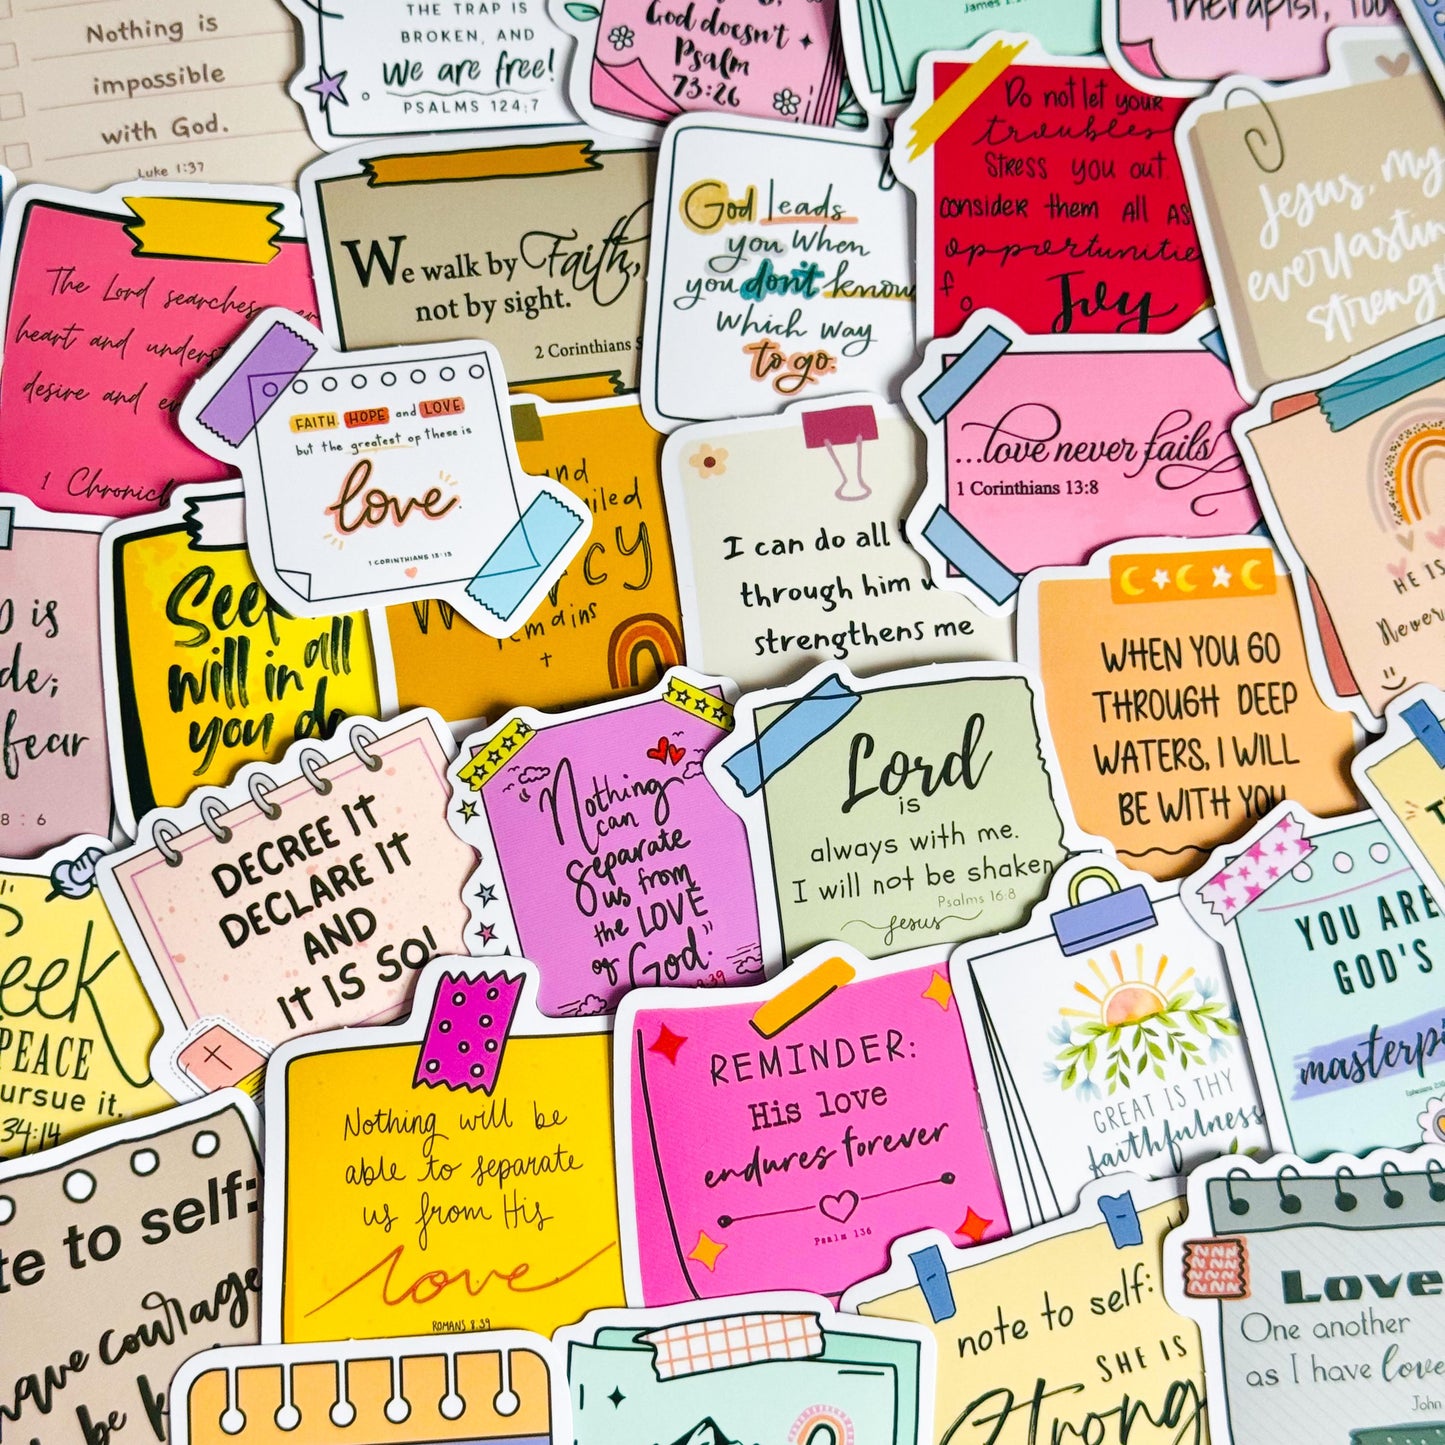 Nothing is
impossible
with God.
Luke 1:37
THE TRAP IS
BROKEN, AND
we are free!
PSALMS 124:7
God doesn't
Psalm
73:26
James
therapist, too
The Lord searches
heart and
desire and
1 Chronicl
We walk by Faith,
not by sight.
2 Corinthians
God leads
you when
you don't know
which way
to go.
Do not let your
troubles
stress you out
consider them all as
opportunitie
f
o
Joy
Jesus, my
everlastin
strengt
FAITH HOPE and LOVE.
but the greatest of these is
love.
1 CORINTHIANS 13:13
nd
iled
cy
remains
I can do all
through him
strengthens me
...love never fails
1 Corinthians 13:8
HE IS
Never
is
de;
fear
8:6
Seek
will in all
you do
WHEN YOU GO
THROUGH DEEP
WATERS, I WILL
BE WITH YOU
DECREE IT
DECLARE IT
AND
IT IS SO!
"Nothing
can
separate
us from
the LOVE
of God."
8:39
Lord
is
always with me.
I will not be shaken
Psalms 16:8
Jesus
YOU ARE
GOD'S
masterpi
eek
PEACE
ursue it.
34:14
te to self:
ave courage
be
Nothing will be
able to separate
us from His
love
ROMANS 8:39
REMINDER:
His love
endures forever
Psalm 136
GREAT IS THY
faithfulness
note to self:
SHE IS
Strong
Love
One another
as I have love
John